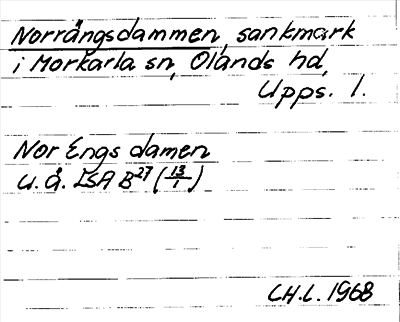 Norrängsdammen, sankmark
i Morkarla sn, Olands hd,
Upps. l.
Nor Engs damen
u.å. LSA B27 (13/1)
CH.L. 1968